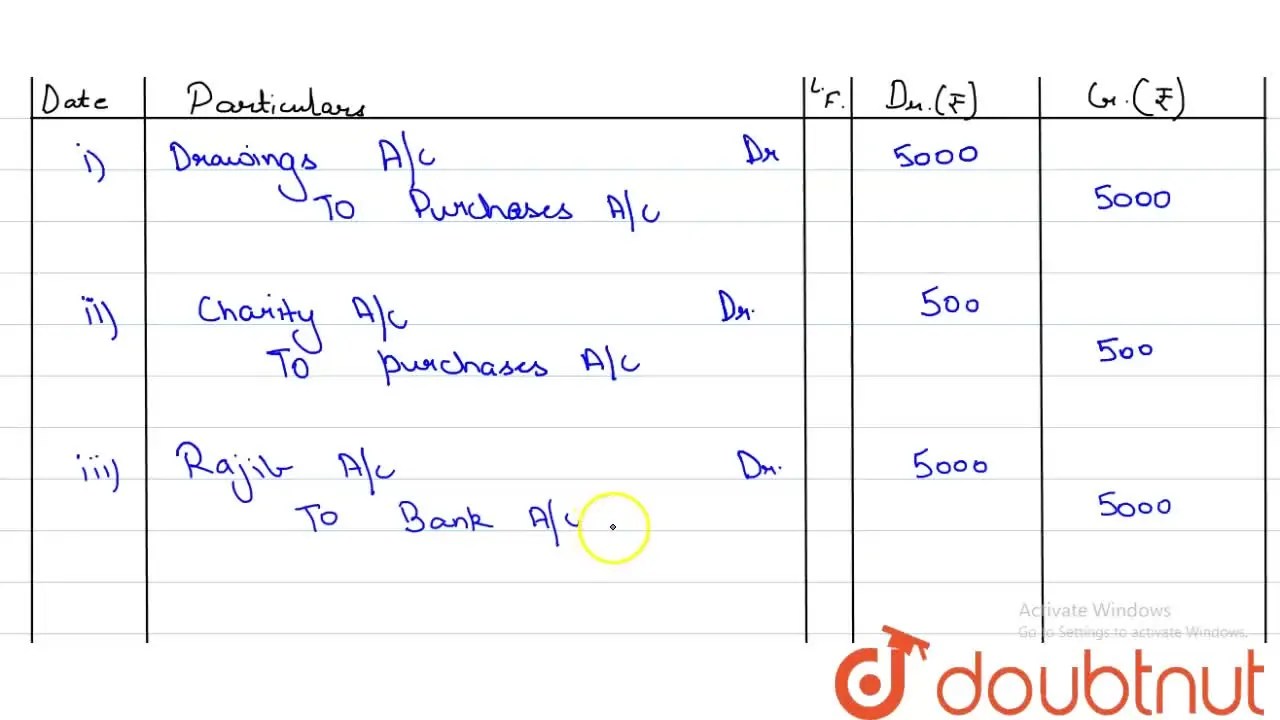 Date Particulars L.F. Dr. (₹) Cr. (₹)
i) Drawings A/C Dr 5000
To Purchases A/C 5000
ii) Charity A/C Dr. 500
To purchases A/C 500
iii) Rajib A/C Dr. 5000
To Bank A/C 5000
Activate Windows
Go to Settings to activate Windows.
doubtnut